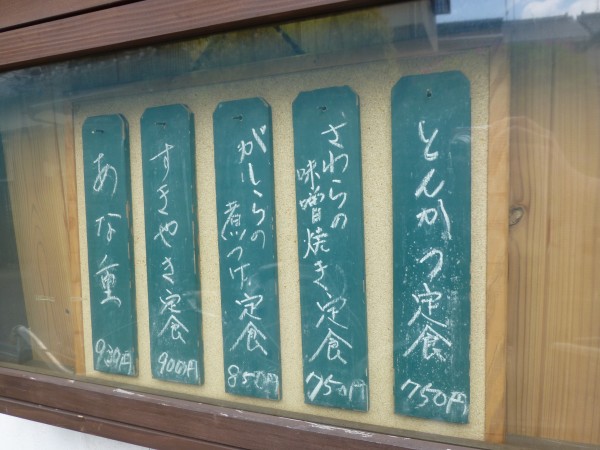 とんかつ定食
750円
さわらの
味噌焼き定食
750円
がしらの
煮つけ定食
850円
すきやき定食
900円
あな重
930円